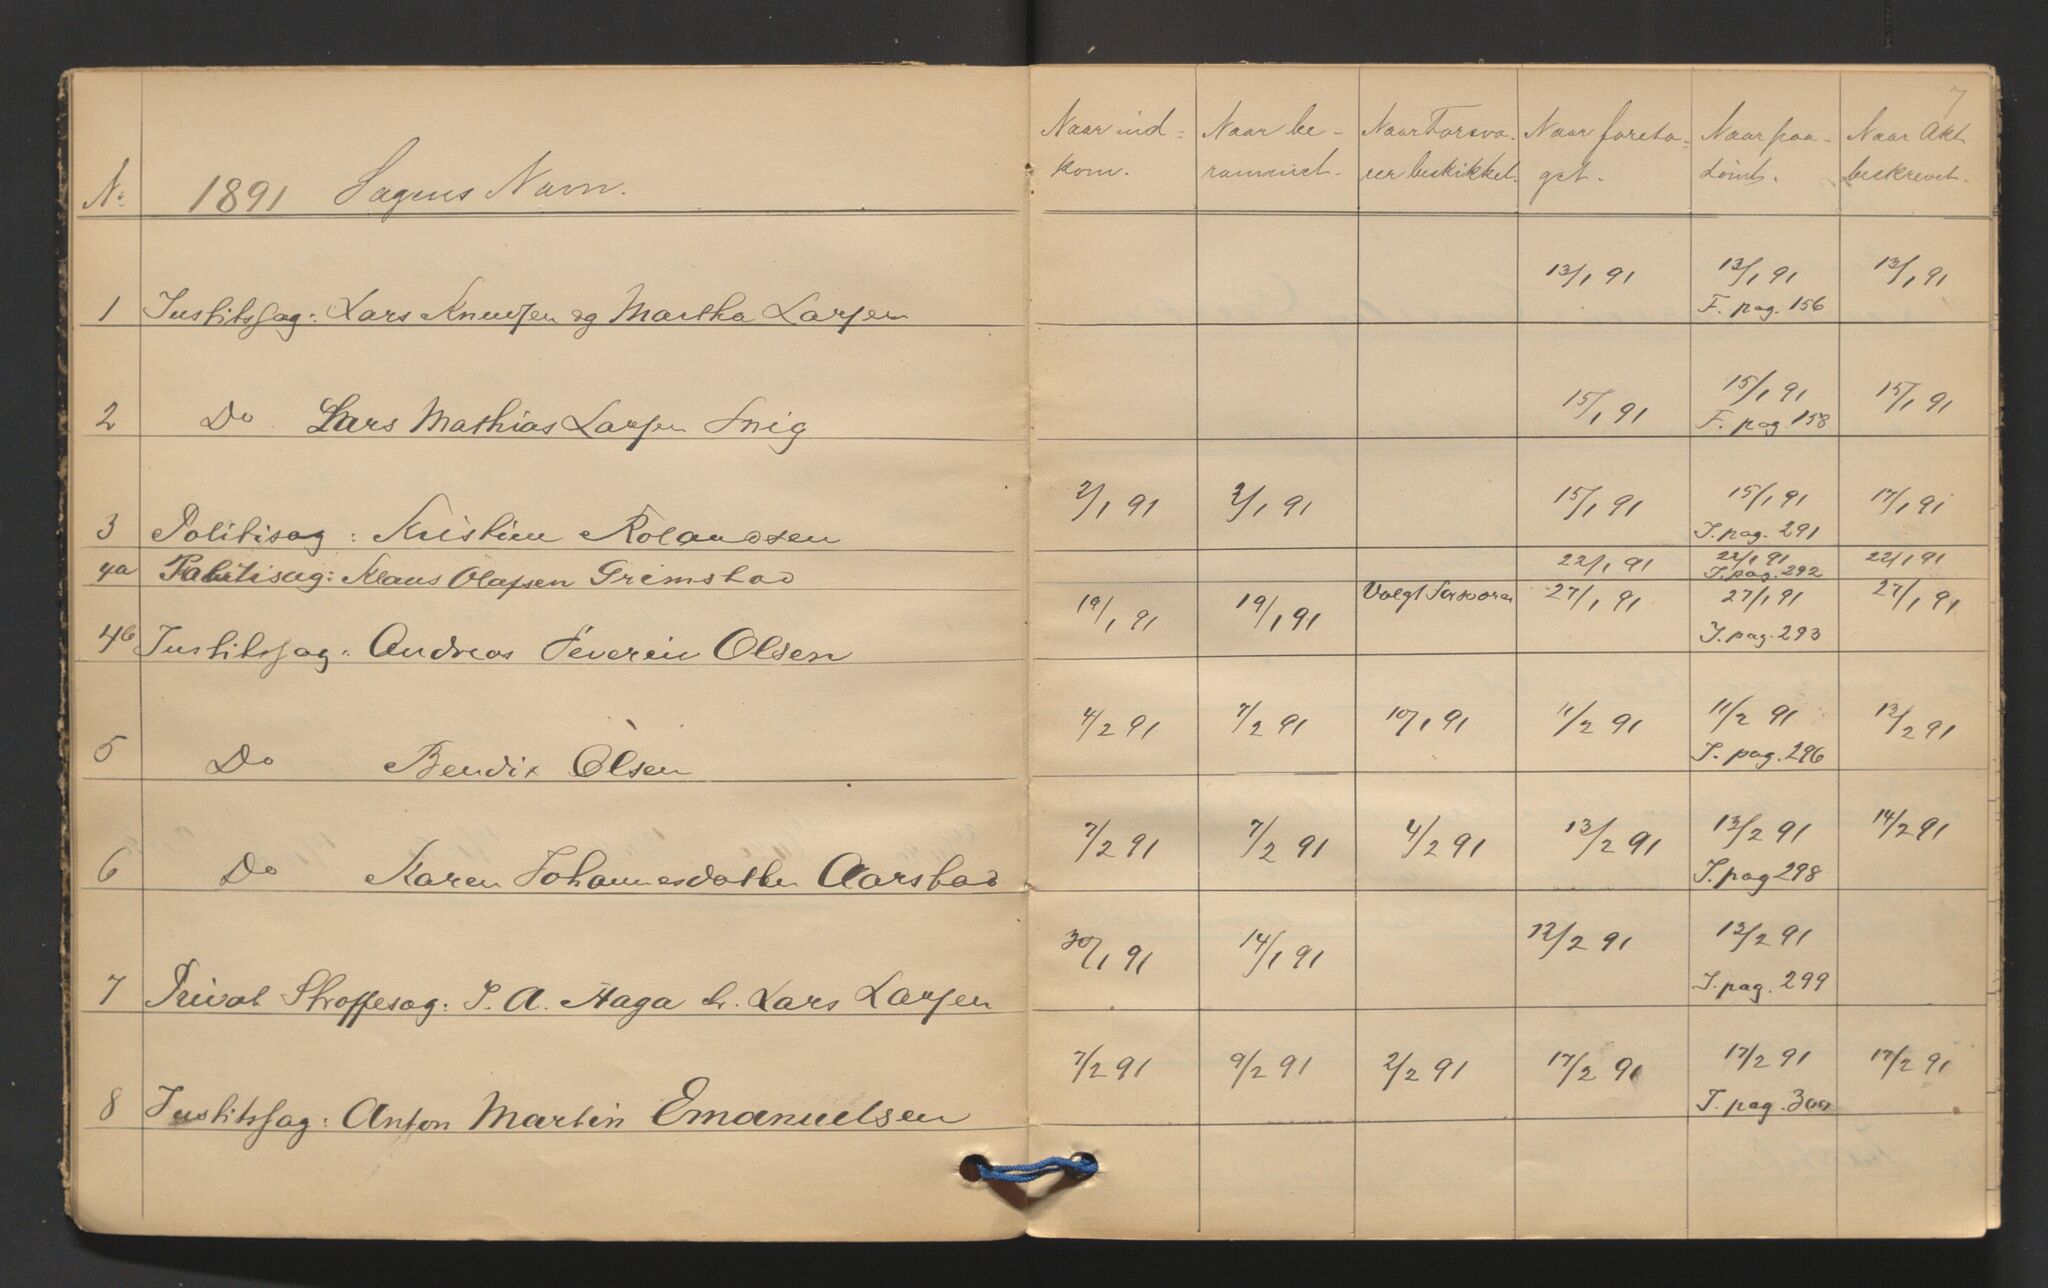 7
No 1891 Sagens Navn. Naar ind= Naar be- Naar Forsva- Naar foreta= Naar paa- Naar Akt
kom. rammet. rer beskikket. get. dömt. beskrevet.
13/1 91 13/1 91 13/1 91
1 Justitssag: Lars Knudsen og Martha Larsen F. pag. 156
15/1 91 15/1 91 15/1 91
2 Do Lars Mathias Larsen F. pag. 158
2/1 91 2/1 91 15/1 91 15/1 91 17/1 91
3 Politisag: Kristian Rolandsen J. pag. 291
22/1 91 22/1 91 22/1 91
4a Politisag: Klaus Olafsen Grimstad J. pag. 292
19/1 91 19/1 91 Valgt Forsvarer 27/1 91 27/1 91 27/1 91
4b Justitssag: Andreas Severin Olsen J. pag. 293
4/2 91 7/2 91 10/1 91 11/2 91 11/2 91 12/2 91
5 Do Bendix Olsen J. pag. 296
7/2 91 7/2 91 4/2 91 13/2 91 13/2 91 14/2 91
6 Do Karen Johannesdatter Aarstad J. pag 298
30/1 91 14/1 91 12/2 91 13/2 91
7 Privat Straffesag: J. A. Haga tr. Lars Larsen J. pag. 299
7/2 91 9/2 91 2/2 91 17/2 91 17/2 91 17/2 91
8 Justitssag: Anton Martin Emanuelsen J. pag. 300